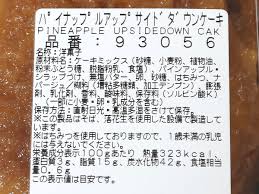 ﾊﾟｲﾅｯﾌﾟﾙアップサイドﾞダﾞウンケーキ
PINEAPPLE UPSIDEDOWN CAKE
品番:93056
名称:洋菓子
原材料名:ケーキミックス(砂糖、小麦粉、植物油、
粉末ぶどう糖、脱脂粉乳、食塩)、パインアップル・
シラップづけ、無塩バター、卵、砂糖、はちみつ、ナパー
ジュ/加工デンプン、
剤、乳化剤、香料、酸味料、保存料(ソルビン酸K)
(一部に小麦・卵・乳成分を含む)
※はちみつを使用しておりますので、1歳未満の乳児
には与えないでください。
栄養成分表示:100gあたり 熱量323kcal、
蛋白質3g、脂質15g、炭水化物42g、食塩相当
量0.6g
この表示値は目安です。